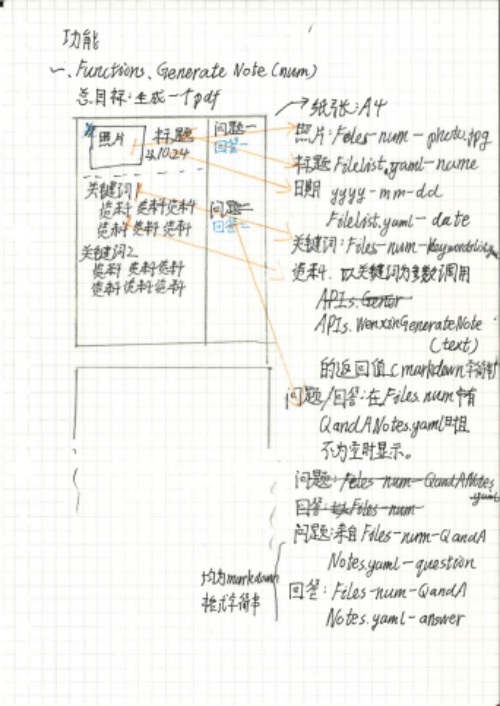 功能
一、Functions、Generate Note (num)
总目标:生成一个pdf
照片
标题
24.10.24
问题一
回答一
关键词1
资料 资料资料
资料 资料 资料
问题二
回答二
关键词2
资料 资料资料
资料 资料 资料
纸张:A4
照片:Files-num-photo.jpg
标题:Filelist.yaml-name
日期 yyyy-mm-dd
Filelist.yaml-date
关键词:Files-num-keywordslist
资料:以关键词为参数调用
APIs.
APIs.WenxinGenerateNote
(text)
的返回值(markdown字符串
问题/回答:在Files.num中有
QandANotes.yaml且
不为空时显示。
问题:Files-num-QandANotes
.yaml
回答:Files-num
问题:来自Files-num-QandA
Notes.yaml-question
回答:Files-num-QandA
Notes.yaml-answer
均为markdown
格式字符串